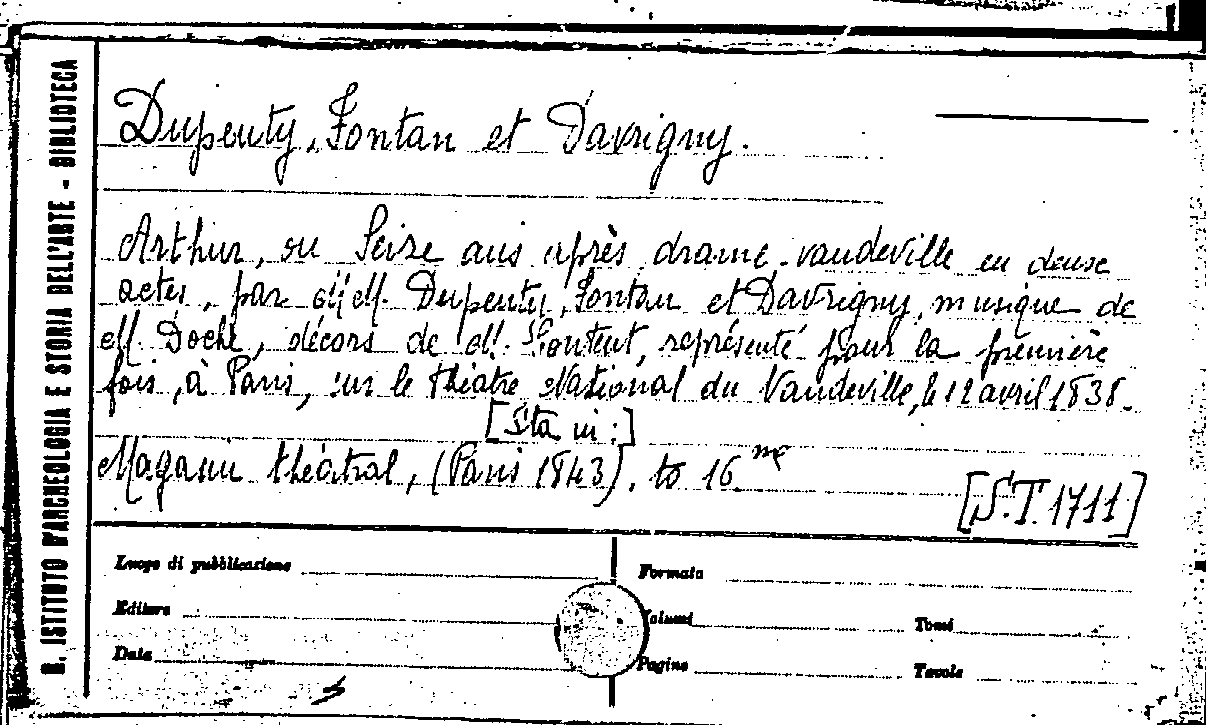 R. ISTITUTO D'ARCHEOLOGIA E STORIA DELL'ARTE - BIBLIOTECA
Dupeuty, Fontan et Davrigny.
Arthur, ou Seize ans après drame-vaudeville en deuse
actes, par MM. Dupeuty, Fontan et Davrigny, musique de
M. Doche, décors de M. Fontent, représenté pour la première
fois, à Paris, sur le théatre National du Vaudeville, le 12 avril 1838.
[Sta in:]
Magasin théatral, (Paris 1843). to 16me
[S.T. 1711]
Luogo di pubblicazione
Formato
Editore
Volumi
Tomi
Data
Pagine
Tavole